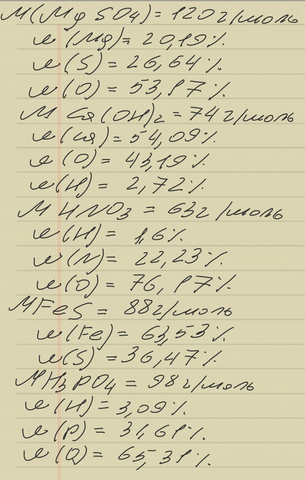 M(MgSO4) = 120г/моль
w(Mg) = 20,19%.
w(S) = 26,64%.
w(O) = 53,17%.
M Ca(OH)2 = 74г/моль
w(Ca) = 54,09%.
w(O) = 43,19%.
w(H) = 2,72%.
M HNO3 = 63г/моль
w(H) = 1,6%.
w(N) = 22,23%.
w(O) = 76,17%.
MFeS = 88г/моль
w(Fe) = 63,53%.
w(S) = 36,47%.
MH3PO4 = 98г/моль
w(H) = 3,09%.
w(P) = 31,61%.
w(O) = 65,31%.